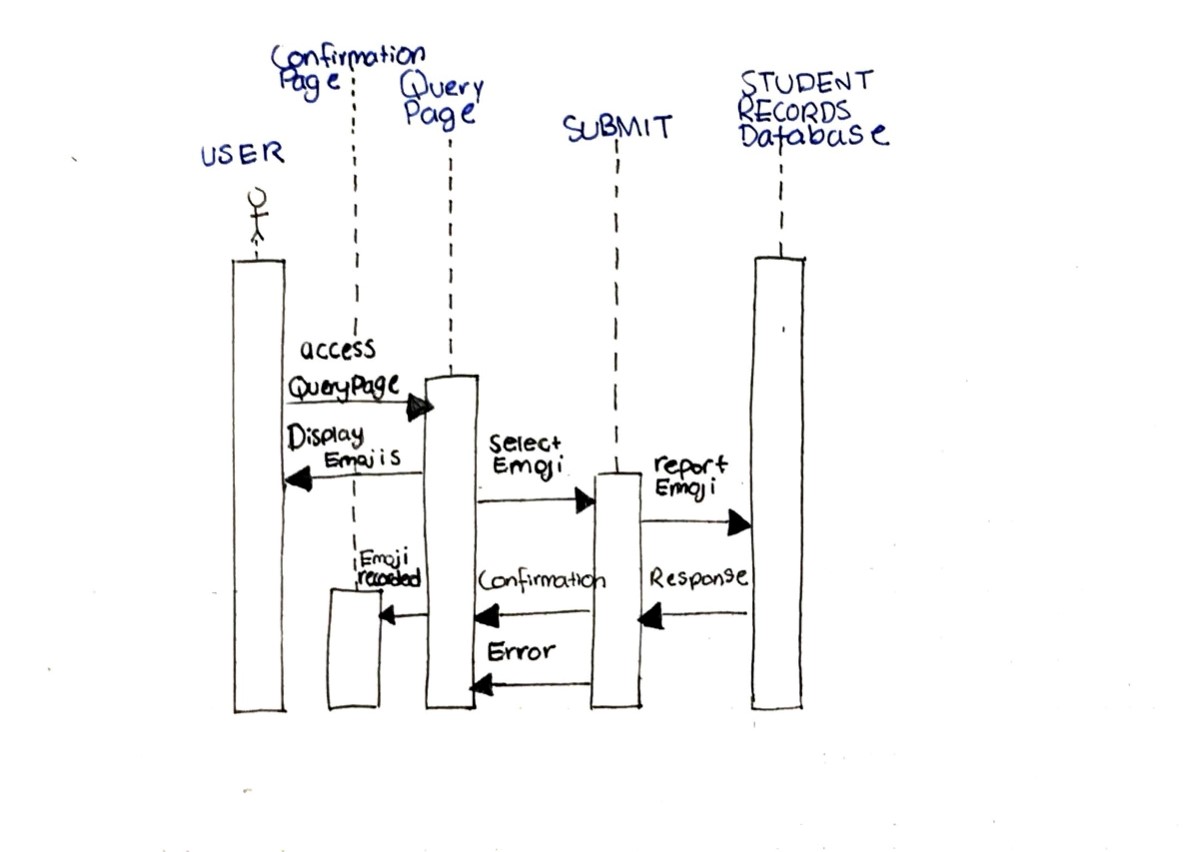 Confirmation
Page
Query
Page
STUDENT
RECORDS
Database
SUBMIT
USER
access
Query Page
Display
Emojis
Select
Emoji
report
Emoji
Emoji
recorded
Confirmation
Response
Error